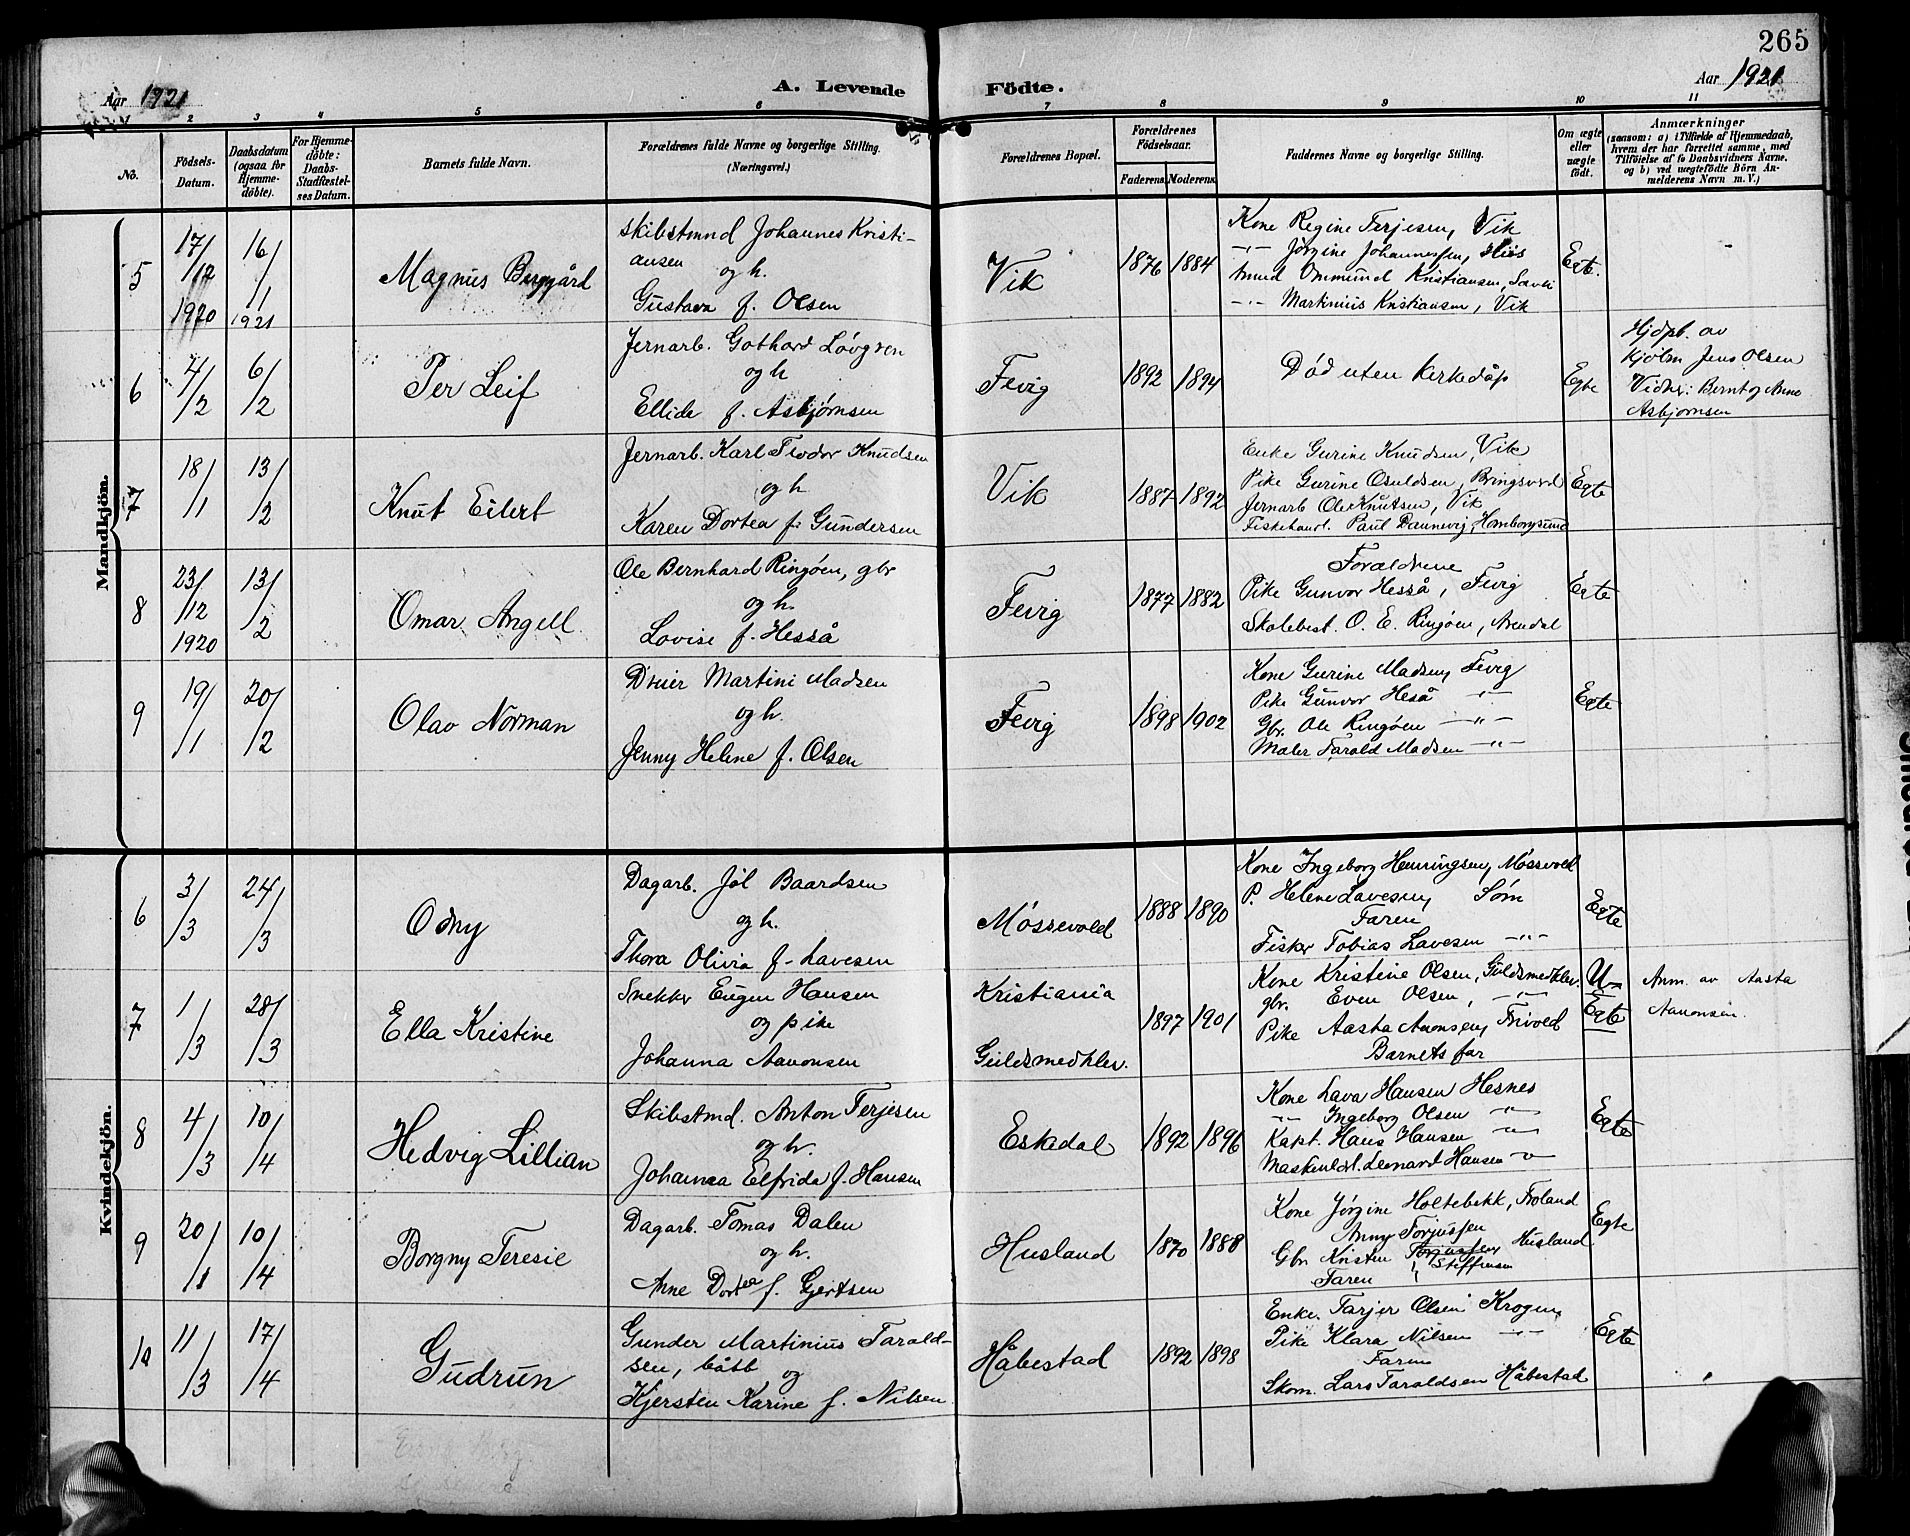 265
Aar 1921
A. Levende
Födte.
Aar 1921
1 2 3 4 5 6 7 8 9 10 11
No.
Födsels-Datum.
Daabsdatum (ogsaa för Hjemme-döbte).
For Hjemme-döbte: Daabs-Stadfæstel-ses Datum.
Barnets fulde Navn.
Forældrenes fulde Navne og borgerlige Stilling. (Næringsvei.)
Forældrenes Bopæl.
Forældrenes Födselsaar.
Faderens. Moderens.
Faddernes Navne og borgerlige Stilling.
Om ægte eller uægte födt.
Anmærkninger
(saasom: a) i Tilfælde af Hjemmedaab, hvem der har forrettet samme, med Tilföielse af to Daabsvidners Navne, og b) ved uægtefödte Börn An-melderens Navn m. V.)
Mandkjön.
5
17/12 1920
16/1 1921
Magnus Berggård
Skibstmnd Johannes Kristi-
ansen og h.
Gustava f. Olsen
Vik
1876 1884
Kone Regine Terjesen, Vik
-"- Jørgine Johannessen,
Ommund Kristiansen,
-"- Martinius Kristiansen, Vik
Egte.
6
4/2
6/2
Per Leif
Jernarb. Gothard Lövgren
og h
Ellida f. Asbjørnsen
Fevig
1892 1894
Død uten kirkedåp
Egte
Hjdpb. av
Kjølm Jens Olsen
Vidner: Bernt og Anna
Asbjørnsen
7
18/1
13/2
Knut Eilert
Jernarb. Karl Teodor Knudsen
og h
Karen Dortea f. Gundersen
Vik
1887 1892
Enke Gurine Knudsen, Vik
Pike Gurine Osuldsen, Bringsværd
Jernarb Ole Knutsen, Vik
Fiskehandl. Paul Dannevig, Homborgsund
Egte
8
23/12 1920
13/2
Omar Angell
Ole Bernhard Ringøen, gbr
og h.
Lovise f. Hesså
Fevig
1877 1882
Forældrene
Pike Gunvor Hesså, Fevig
Skolebest. O. E. Ringøen, Arendal
Egte
9
19/1
20/2
Olav Norman
Dreier Martini Madsen
og h.
Jenny Helene f. Olsen
Fevig
1898 1902
Kone Gurine Madsen, Fevig
Pike Gunvor Heså -"-
Gbr. Ole Ringøen -"-
Maler Tarald Madsen -"-
Egte
Kvindekjön.
6
3/3
24/3
Odny
Dagarb. Jol Baardsen
og h.
Thora Olivia f. Lavesen
Møssevold
1888 1890
Kone Ingeborg Henningsen, Møssevold
P. Helene Lavesen, Söm
Faren
Fisker Tobias Lavesen -"-
Egte
7
1/3
28/3
Ella Kristine
Snekker Eugen Hansen
og pike
Johanna Aanonsen
Kristiania
Guldsmedklev.
1897 1901
Kone Kristine Olsen, Guldsmedklev.
gbr. Even Olsen, -"-
Pike Aasta Aanonsen, Frivold
Barnets far
U-
Egte
Anm. av Aasta
Aanonsen.
8
4/3
10/4
Hedvig Lillian
Skibstmd. Anton Terjesen
og h.
Johanna Elfrida f. Hansen
Eskedal
1892 1896
Kone Lava Hansen Hesnes
-"- Ingeborg Olsen -"-
Kapt. Hans Hansen -"-
Leonard Hansen -"-
Egte
9
20/1
10/4
Borgny Teresie
Dagarb. Tomas Dalen
og h.
Anne Dortea f. Gjertsen
Husland
1870 1888
Kone Jørgine Holtebekk, Froland
Anny Torjussen
Gbr Kristen Torjussen Husland
Steffensen
Faren
Egte
10
11/3
17/4
Gudrun
Gunder Martinius Tarald-
sen, båtb
og
Kjersten Karine f. Nilsen
Håbestad
1892 1898
Enke. Tarjer Olsen Krogen,
Pike Klara Nilsen -"-
Faren
Skom. Lars Taraldsen Håbestad
Egte